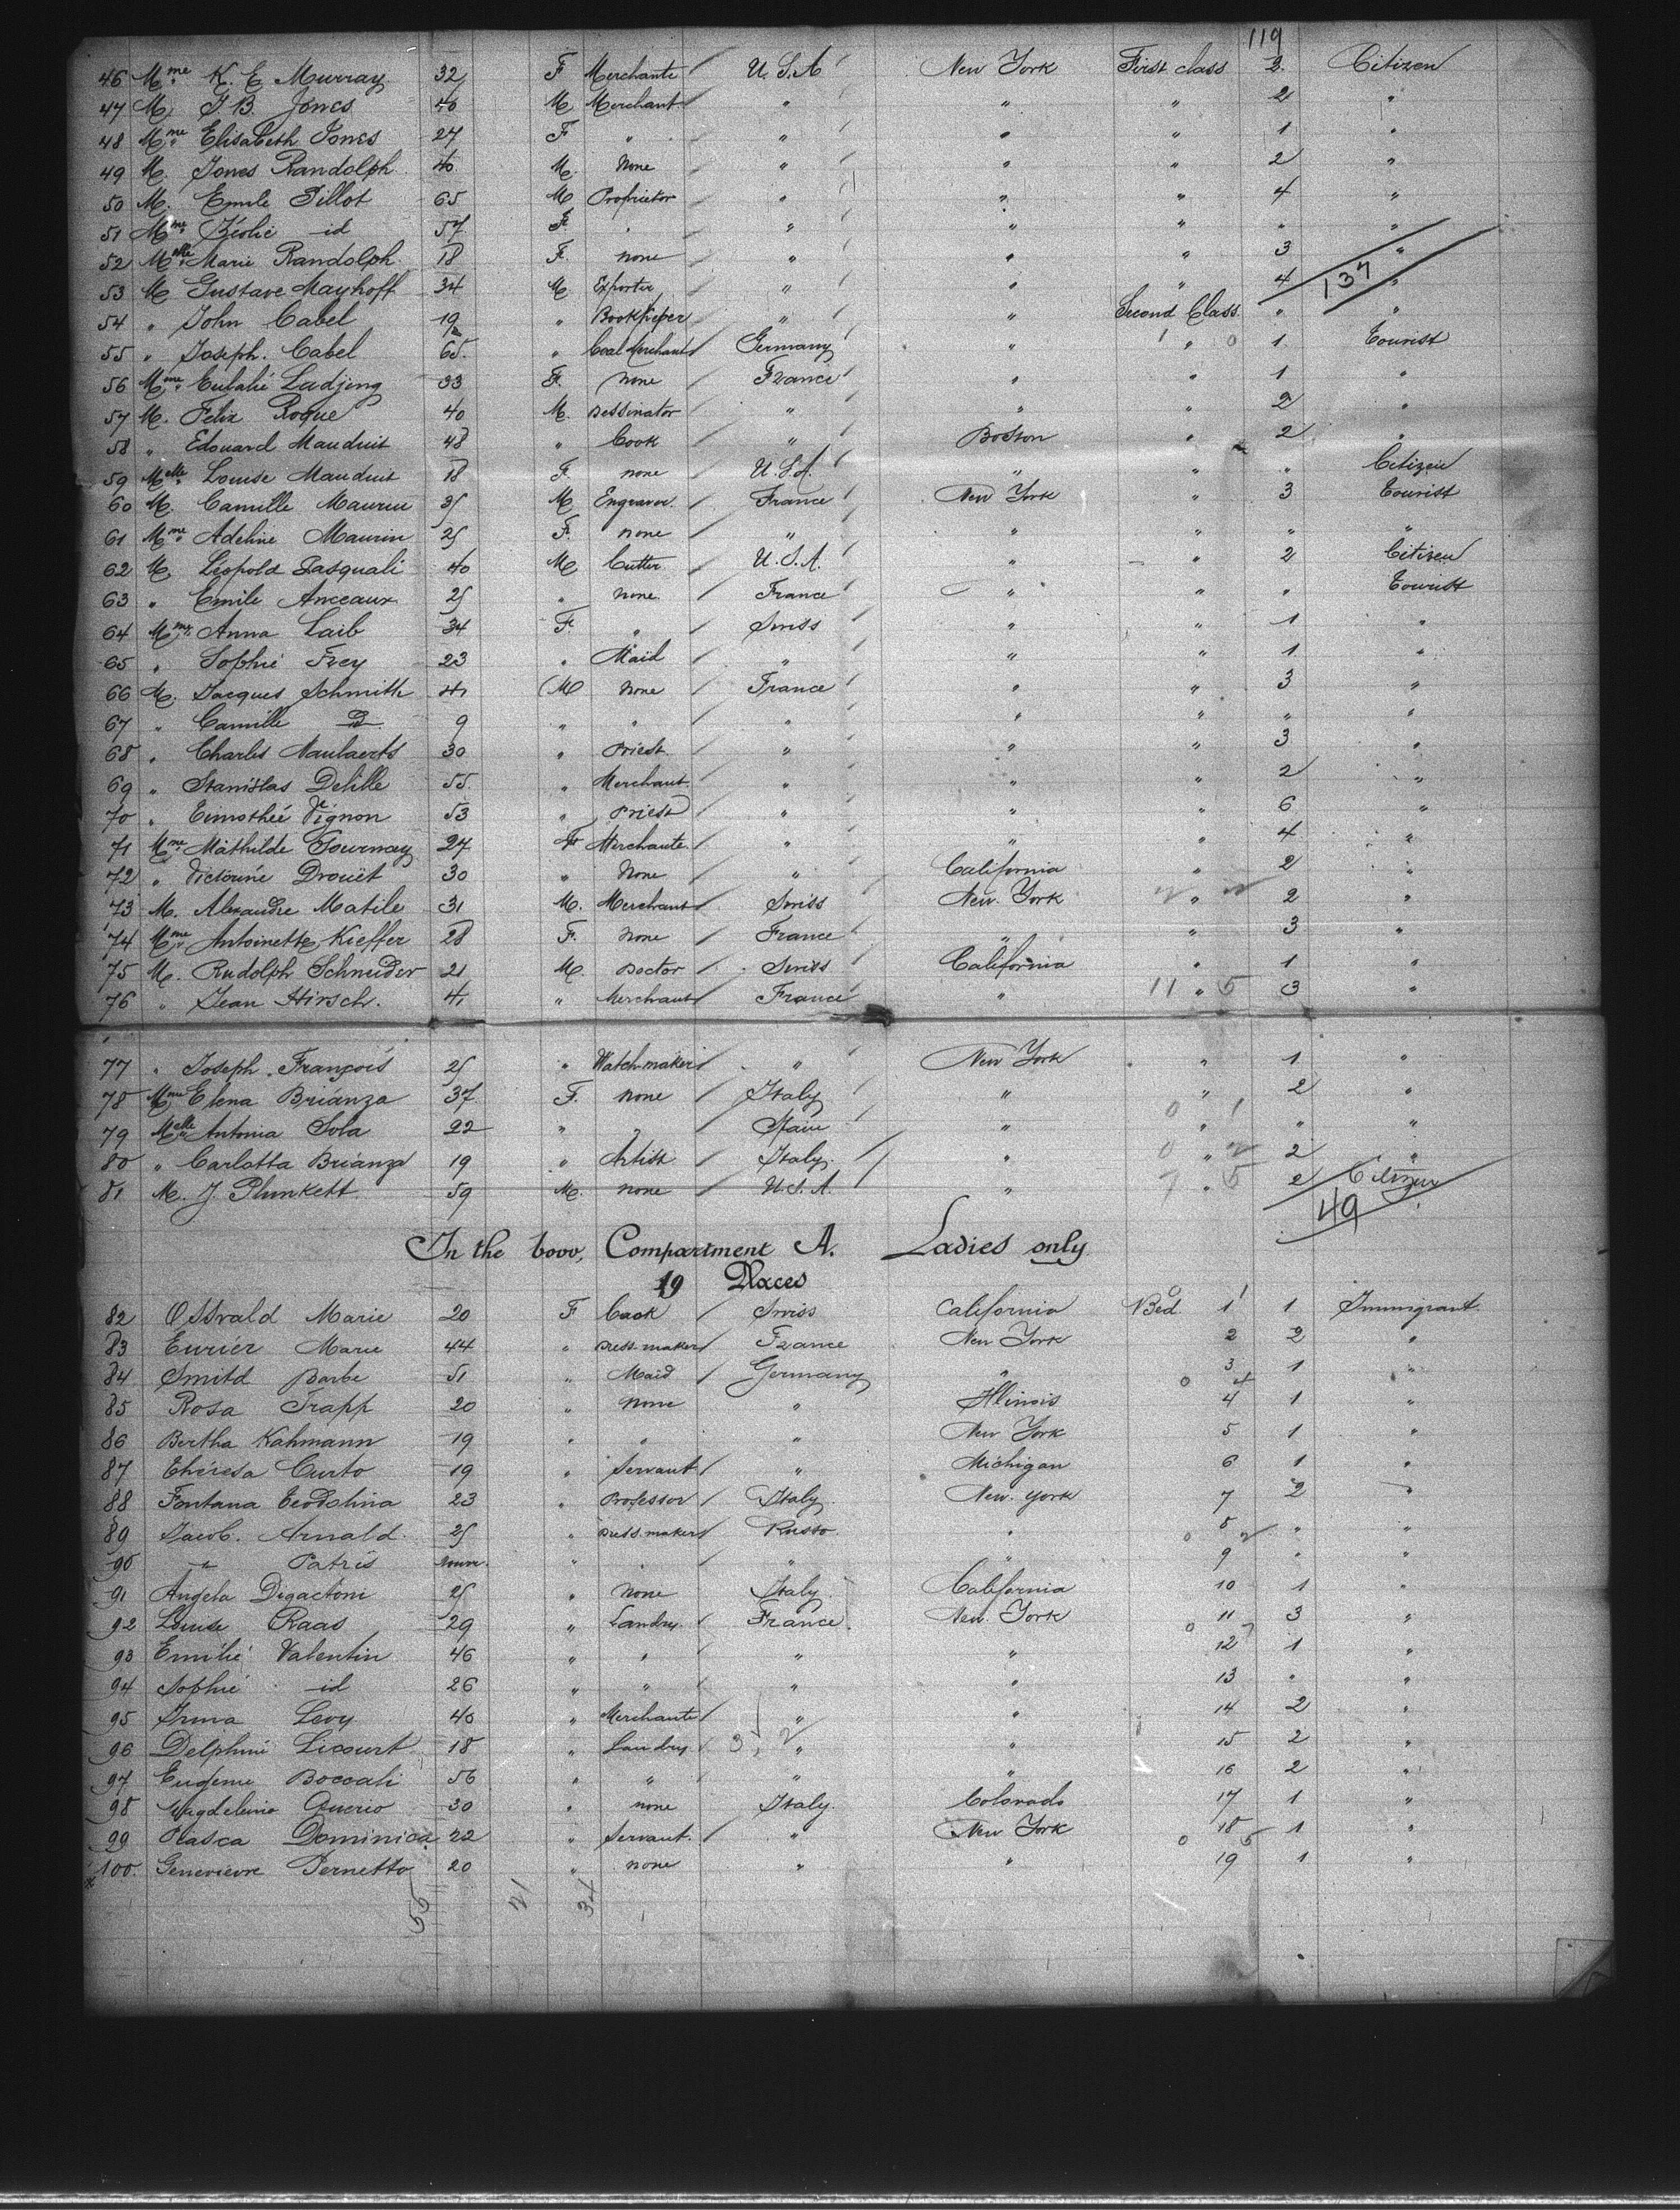 119
46 Mme K. E Murray 32 F Merchante U.S.A New York First class 3. Citizen
47 M. J B. Jones 40 M. Merchant " " " 2 "
48 Mme Elisabeth Jones 27 F " " " " 1 "
49 M. Jones Randolph 40 M. None " " " 2 "
50 M. Emile Pillot 65 M Proprietor " " " 4 "
51 Mme Zéolie id 57 F. " " " " " "
52 Melle Marie Randolph 18 F. none " " " 3 "
53 M Gustave Mayhoff 34 M Exporter " " " 4 "
137
54 " John Cabel 19 " Bookkeeper " " Second Class. " "
55 " Joseph. Cabel 65. " Coal Merchant Germany " " 1 Tourist
56 Mme Eulalie Ladjeng 33 F. none France " " 1 "
57 M. Felix Roque 40 M. Dessinator " " " 2 "
58 " Edouard Mauduit 48 " Cook " Boston " 2 "
59 Melle Louise Mauduit 18 F. none U.S.A. " " " Citizen
60 M. Camille Maurin 35 M Engraver. France New York " 3 Tourist
61 Mme Adeline Maurin 25 F. none " " " " "
62 M. Léopold Pasquali 40 M. Cutter U.S.A. " " 2 Citizen
63 " Emile Anceaux 25 " None France " " " Tourist
64 Mme Anna Laib 34 F. " Swiss " " 1 "
65 " Sophie Frey 23 " Maid " " " 1 "
66 M. Jacques Schmitt 41 M None France " " 3 "
67 " Camille id 9 " " " " " " "
68 " Charles Naulaerts 30 " Priest " " " 3 "
69 " Stanislas Delille 55. " Merchant. " " " 2 "
70 " Timothée Vignon 53 " Priest " " " 6 "
71 Mme Mathilde Tournay 27 F Merchante. " " " 4 "
72 " Victorine Drouet 30 " None " California " 2 "
73 M. Alexandre Matile 31 M. Merchant Swiss New York " 2 "
74 Mme Antoinette Kieffer 28 F. None France " " 3 "
75 M. Rudolph Schneider 21 M. Doctor Swiss California " 1 "
76 " Jean Hirsch. 41 " Merchant France " 11 " 5 3 "
77 " Joseph. François 25 " Watchmaker " New York " 1 "
78 Mme Elena Brianza 37 F. none Italy " " 2 "
79 Melle Antonia Sola 22 " " Spain " " " "
80 " Carlotta Brianza 19 " Artist Italy. " " 2 "
81 M. J. Plunkett 59 M. none U.S.A. " 7 " 5 2 Citizen
49
In the bovo, Compartment A. Ladies only
19 Places
82 Osvald Marie 20 F Cook Swiss California Bed 1 1 Immigrant
83 Euriér Marie 44 " Dressmaker France New York 2 2 "
84 Smitd Barbe 51 " Maid Germany " 3 1 "
85 Rosa Trapp 20 " None " Illinois 4 1 "
86 Bertha Kahmann 19 " " " New York 5 1 "
87 Théresa Curto 19 " Servant " Michigan 6 1 "
88 Fontana Teodolina 23 " Professor Italy. New. york 7 2 "
89 Jacob. Arnald. 25 " Dressmaker Russo. " 8 " "
90 " Patris " " " " 9 " "
91 Angela Degactoni 25 " None Italy California 10 1 "
92 Louise Raas 29 " Landry. France. New York 11 3 "
93 Emilié Valentin 46 " " " " 12 1 "
94 Sophie id 26 " " " " 13 " "
95 Irma Levy 40 " Merchante " " 14 2 "
96 Delphine Licourt 18 " Laundry " " 15 2 "
97 Eugénie Boccali 56 " " " " 16 2 "
98 Magdeleine Querio 30 " none Italy. Colorado 17 1 "
99 Plasca Dominica 22 " Servant. " New York 18 1 "
100. Genevieve Pernetto 20 " none " " 19 1 "
55 21 34